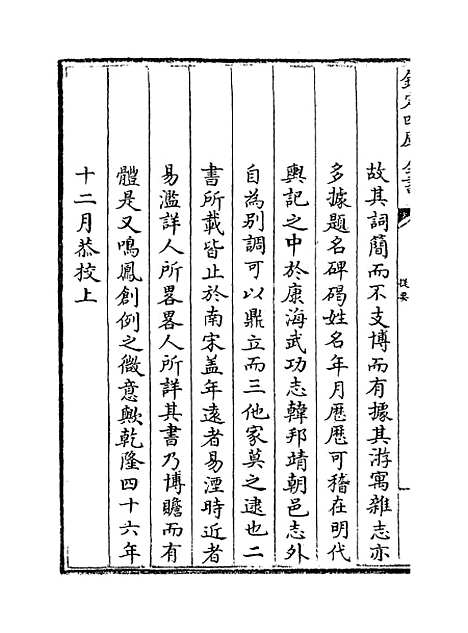 欽定四庫全書
提要
故其詞簡而不支博而有據其游寓雜志亦
多據題名碑碣姓名年月歷歷可稽在明代
輿記之中於康海武功志韓邦靖朝邑志外
自為别調可以鼎立而三他家莫之逮也二
書所載皆止於南宋盖年逺者易湮時近者
易濫詳人所畧畧人所詳其書乃博贍而有
體是又鳴鳳創例之微意歟乾隆四十六年
十二月恭校上